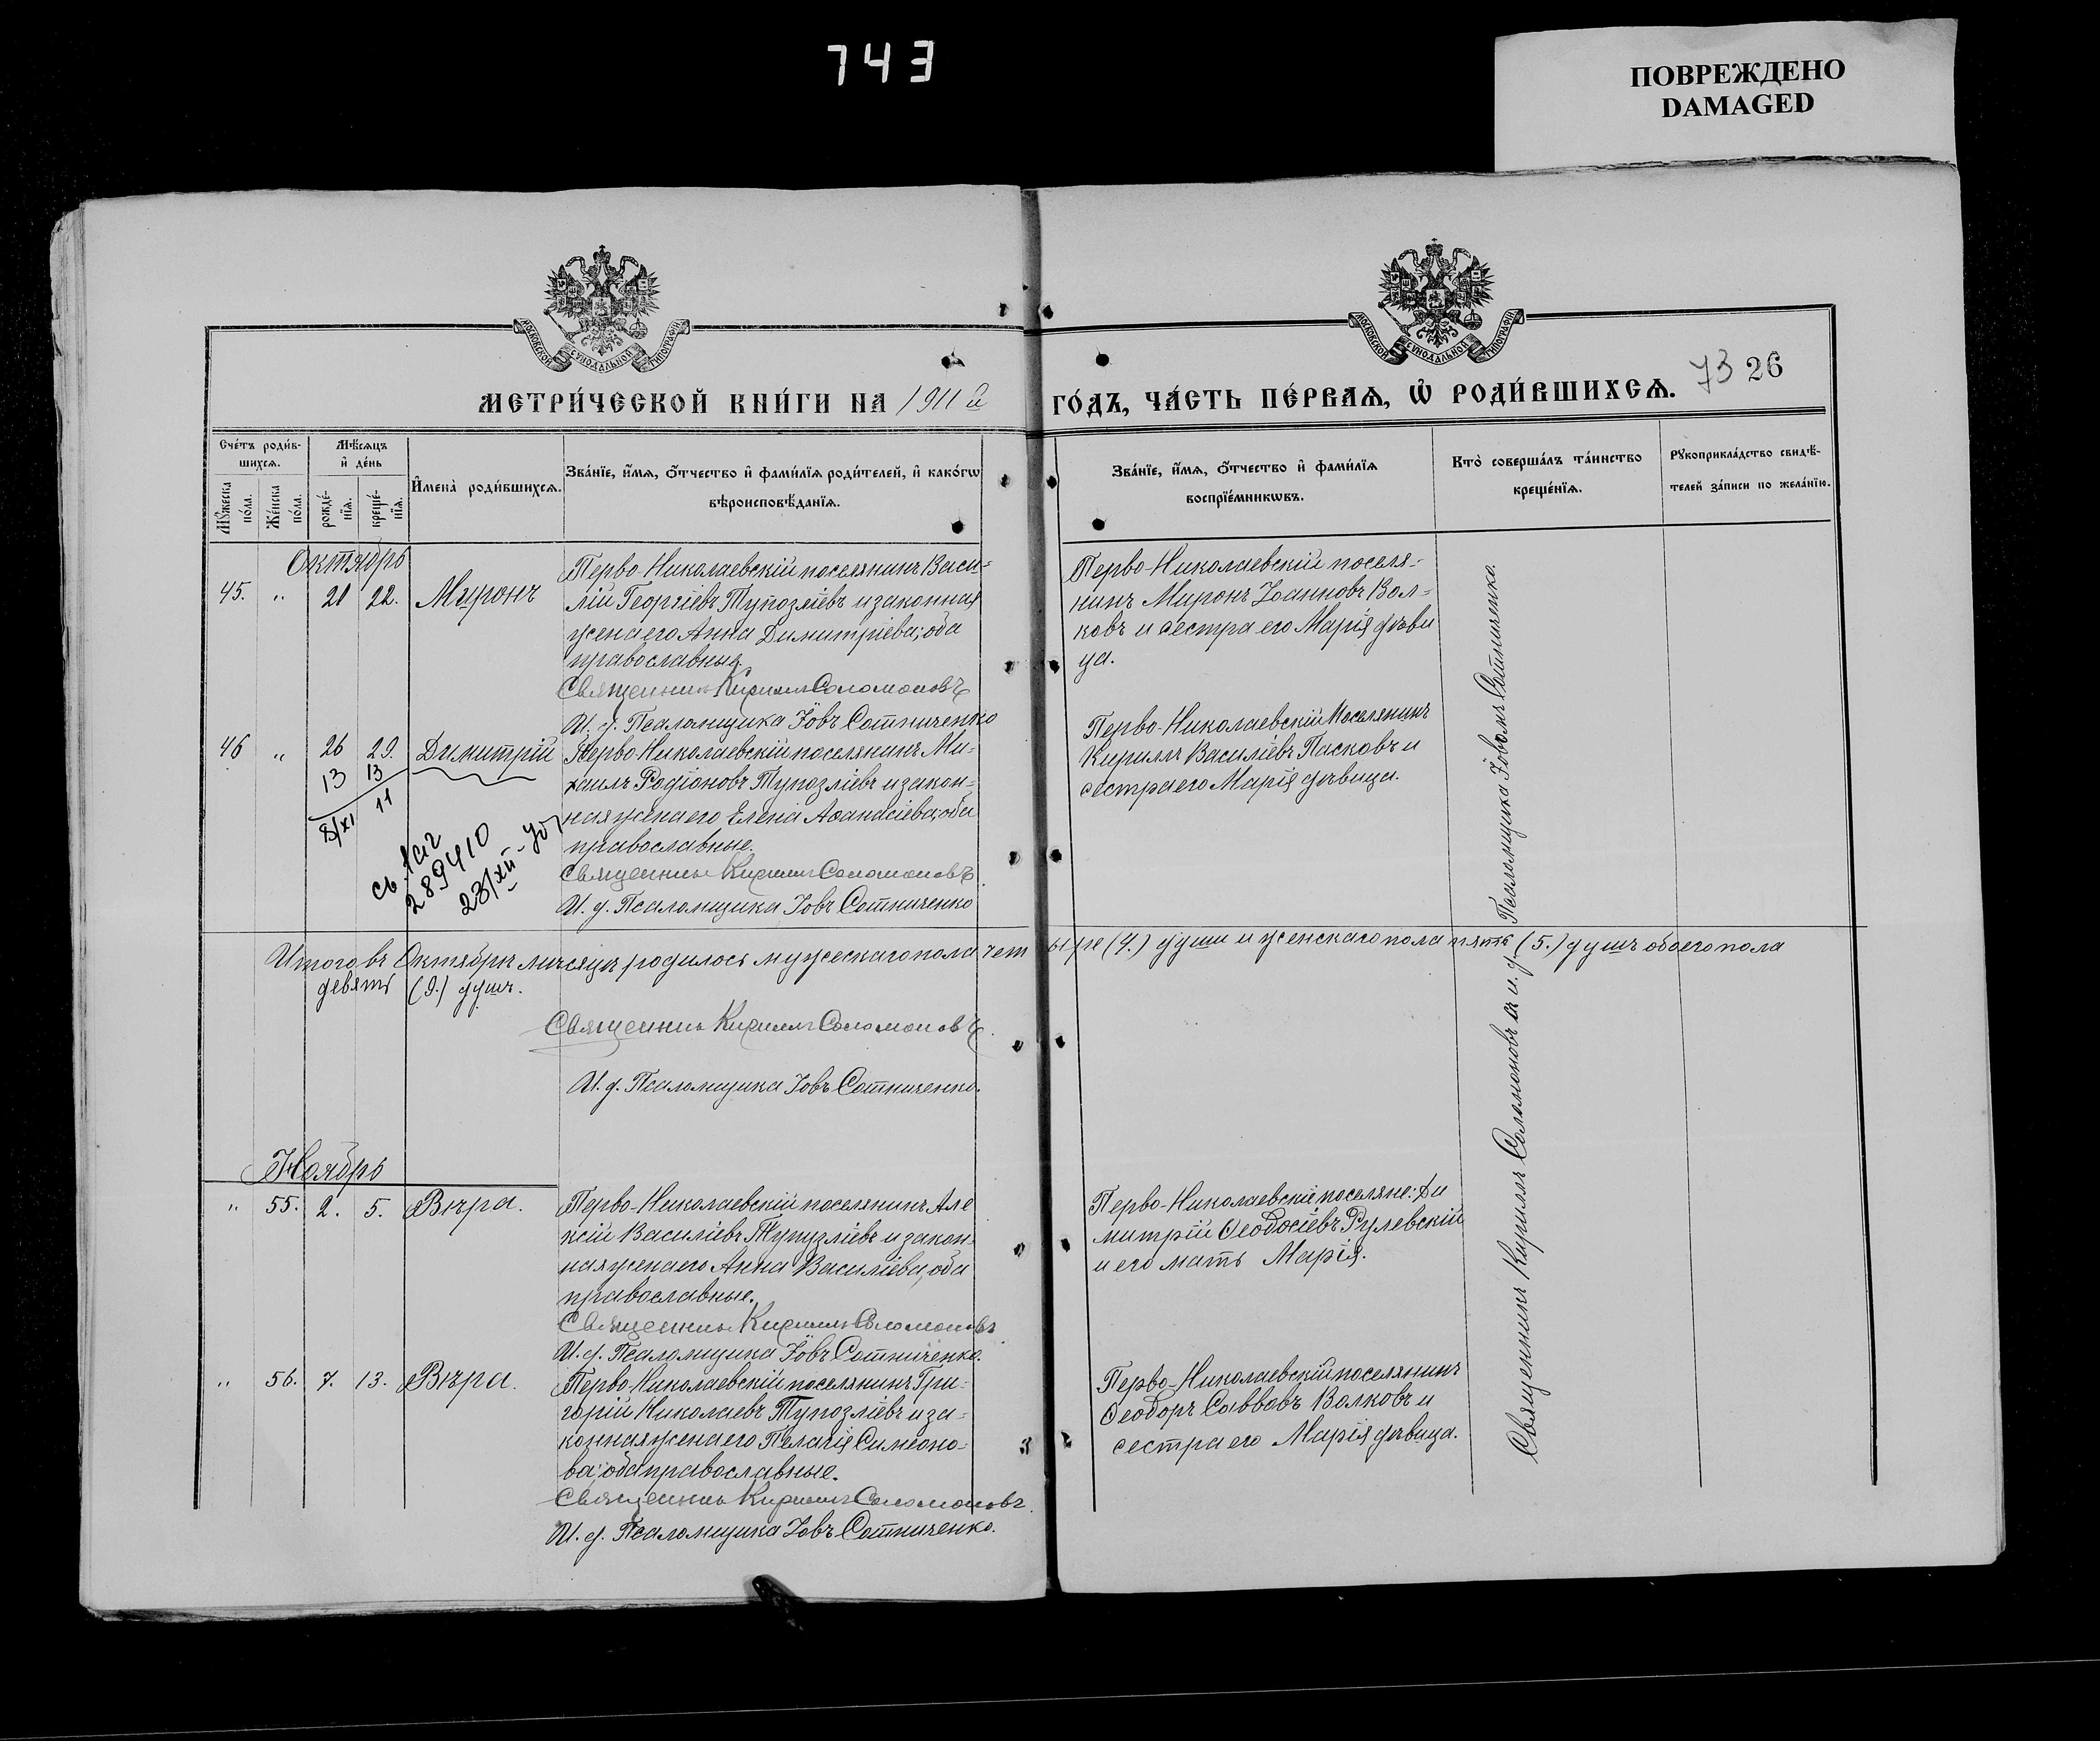 743
ПОВРЕЖДЕНО
DAMAGED
МОСКОВСКОЙ СѴНОДАЛЬНОЙ ТИПОГРАФІИ
МОСКОВСКОЙ СѴНОДАЛЬНОЙ ТИПОГРАФІИ
МЕТРИ́ЧЕСКОЙ КНИ́ГИ НА 1911 й
ГО́ДЪ, ЧА́СТЬ ПЕ́РВАѦ, Ѡ҆ РОДИ́ВШИХСѦ.
73 26
Сче́тъ роди́в-
шихсѧ.
Мꙋ́жеска по́ла.
Же́нска по́ла.
Мѣ́сѧцъ
и҆ де́нь
рожде́-
нїѧ.
креще́-
нїѧ.
И҆мена̀ роди́вшихсѧ.
Зва́нїе, и҆́мѧ, ѻ҆́тчество и҆ фами́лїѧ роди́телей, и҆ како́гѡ
вѣроисповѣ́данїѧ.
Зва́нїе, и҆́мѧ, ѻ҆́тчество и҆ фами́лїѧ
воспрїе́мникѡвъ.
Кто̀ соверша́лъ та́инство
креще́нїѧ.
Рꙋкоприкла́дство свидѣ́-
телей за́писи по жела́нїю.
Октябрь
45. " 21 22. Миронъ
Перво-Николаевскій поселянинъ Васи-
лій Георгіевъ Тупозліевъ и законная
жена его Анна Димитріева; оба
православные.
Священникъ Кириллъ Соломоновъ
И. д. Псаломщика Іовъ Сотниченко
Перво-Николаевскій поселя-
нинъ Миронъ Іоанновъ Вол-
ковъ и сестра его Марія дѣви
ца.
46 " 26 29. Димитрій
13 13
8/XI 11
289410
23/XII
Перво Николаевскій поселянинъ Ми-
хаилъ Родіоновъ Тупозліевъ и закон-
ная жена его Елена Аѳанасіева; оба
православные.
Священникъ Кириллъ Соломоновъ
И. д. Псаломщика Іовъ Сотниченко
Перво-Николаевскій Поселянинъ
Кириллъ Василіевъ Пасковъ и
сестра его Марія дѣвица.
Итого въ Октябрѣ мѣсяцѣ родилось мужескаго пола четыре (4.) души и женскаго пола пять (5.) душъ обоего пола
девять (9.) душъ.
Священникъ Кириллъ Соломоновъ.
И. д. Псаломщика Іовъ Сотниченко.
Ноябрь
" 55. 2. 5. Вѣра.
Перво-Николаевскій поселянинъ Але
ксій Василіевъ Тупузліевъ и закон-
ная жена его Анна Василіева, оба
православные.
Священникъ Кириллъ Соломоновъ
И. д. Псаломщика Іовъ Сотниченко.
Перво-Николаевскіе поселяне: Ди
митрій Ѳеодосіевъ Рулевскій
и его мать Марія.
" 56. 7. 13. Вѣра.
Перво-Николаевскій поселянинъ Гри-
горій Николаевъ Тупозліевъ и за-
конная жена его Пелагія Симеоно-
ва; оба православные.
Священникъ Кириллъ Соломоновъ
И. д. Псаломщика Іовъ Сотниченко.
Перво-Николаевскій поселянинъ
Ѳеодоръ Саввовъ Волковъ и
сестра его Марія дѣвица.
Священникъ Кириллъ Соломоновъ съ и. д. Псаломщика Іовомъ Сотниченко.